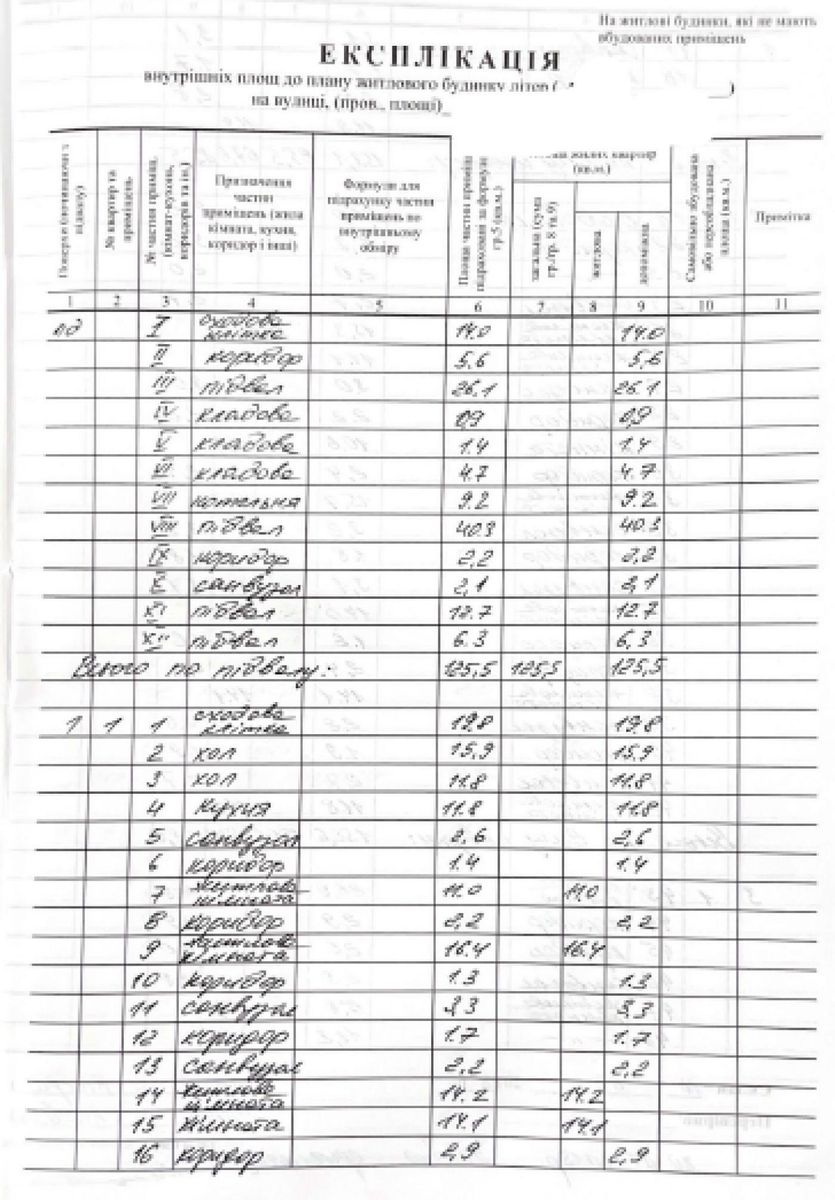 На житлові будинки, які не мають
вбудованих приміщень
ЕКСПЛІКАЦІЯ
внутрішніх площ до плану житлового будинку літер (
на вулиці, (пров., площі)
Поверхи (починаючи з підвалу)
№ квартир та приміщень
№ частин приміщ. (кімнат-кухонь, коридорів та ін.)
Призначення частин приміщень (жила кімната, кухня, коридор і інші)
Формули для підрахунку частин приміщень по внутрішньому обміру
Площа частин приміщ. підрахована за формулою гр.5 (кв.м.)
жилих квартир (кв.м.)
загальна (сума гр./гр. 8 та 9)
житлова
допоміжна
Самовільно збудована або переобладнана площа (кв.м.)
Примітка
1 2 3 4 5 6 7 8 9 10 11
пд I сходова клітка 14.0 14.0
II коридор 5,6 5,6
III підвал 26.1 26.1
IV кладова 0,9 0,9
V кладова 1.4 1.4
VI кладова 4.7 4.7
VII котельня 9.2 9.2
VIII підвал 40.3 40.3
IX коридор 2,2 2,2
X санвузол 2,1 2,1
XI підвал 12.7 12.7
XII підвал 6.3 6,3
Всього по підвалу: 125,5 125,5 125,5
1 1 1 сходова клітка 19.8 19.8
2 хол 15,9 15,9
3 хол 11.8 11.8
4 кухня 11.8 11.8
5 санвузол 2,6 2,6
6 коридор 1.4 1.4
7 житлова кімната 11.0 11.0
8 коридор 2,2 2,2
9 житлова кімната 16.4 16.4
10 коридор 1.3 1.3
11 санвузол 3,3 3,3
12 коридор 1.7 1.7
13 санвузол 2,2 2,2
14 житлова кімната 14.2 14.2
15 кімната 14.1 14.1
16 коридор 2,9 2,9